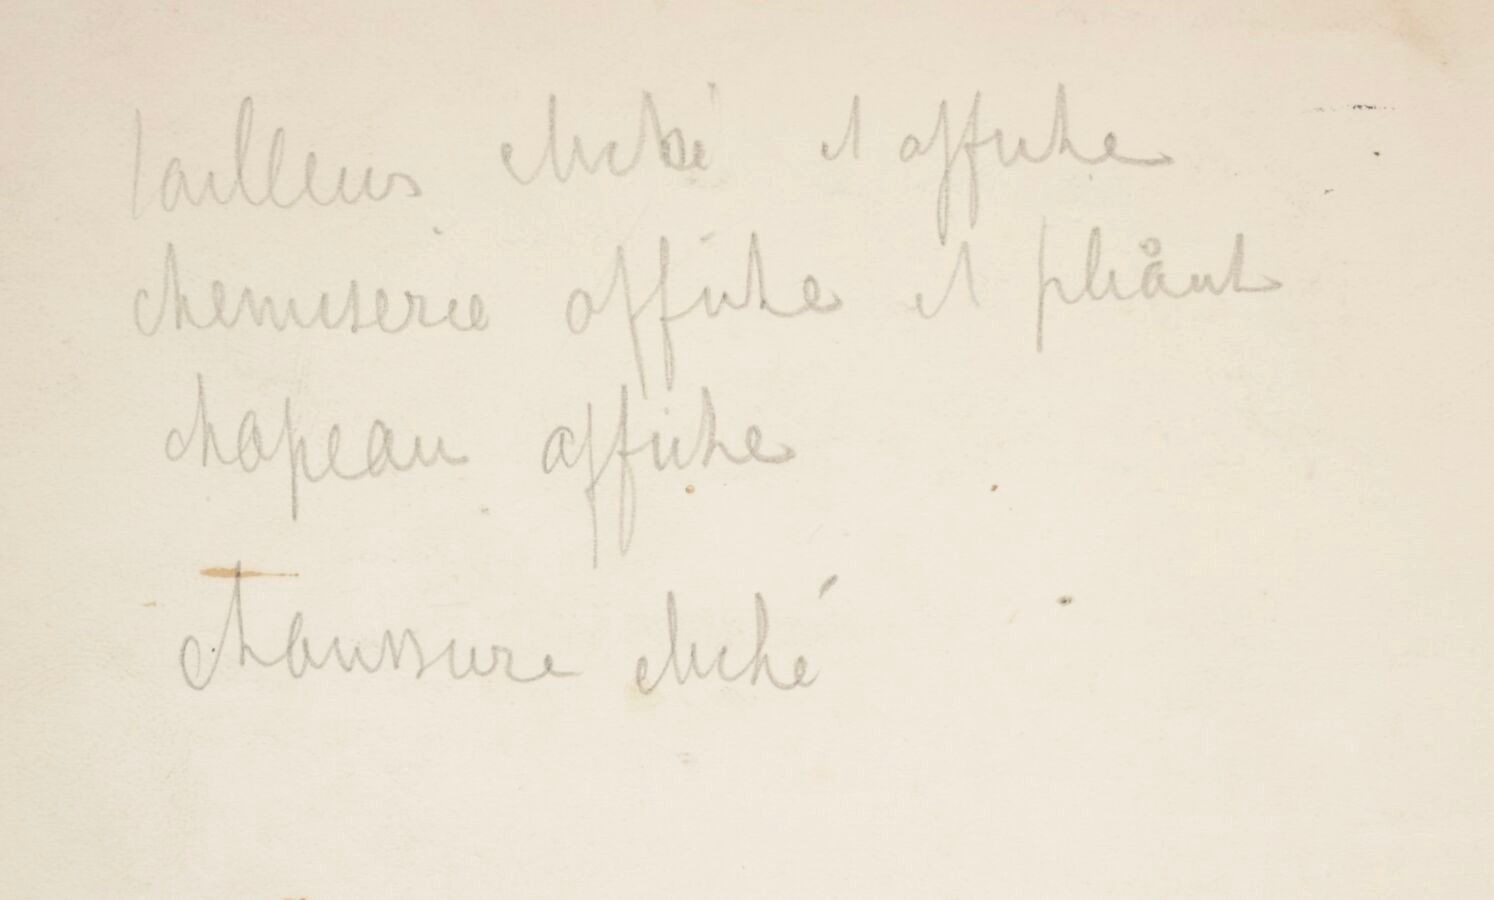 Tailleurs cliché et affiche
chemiserie affiche et pliant
chapeau affiche
chaussure cliché